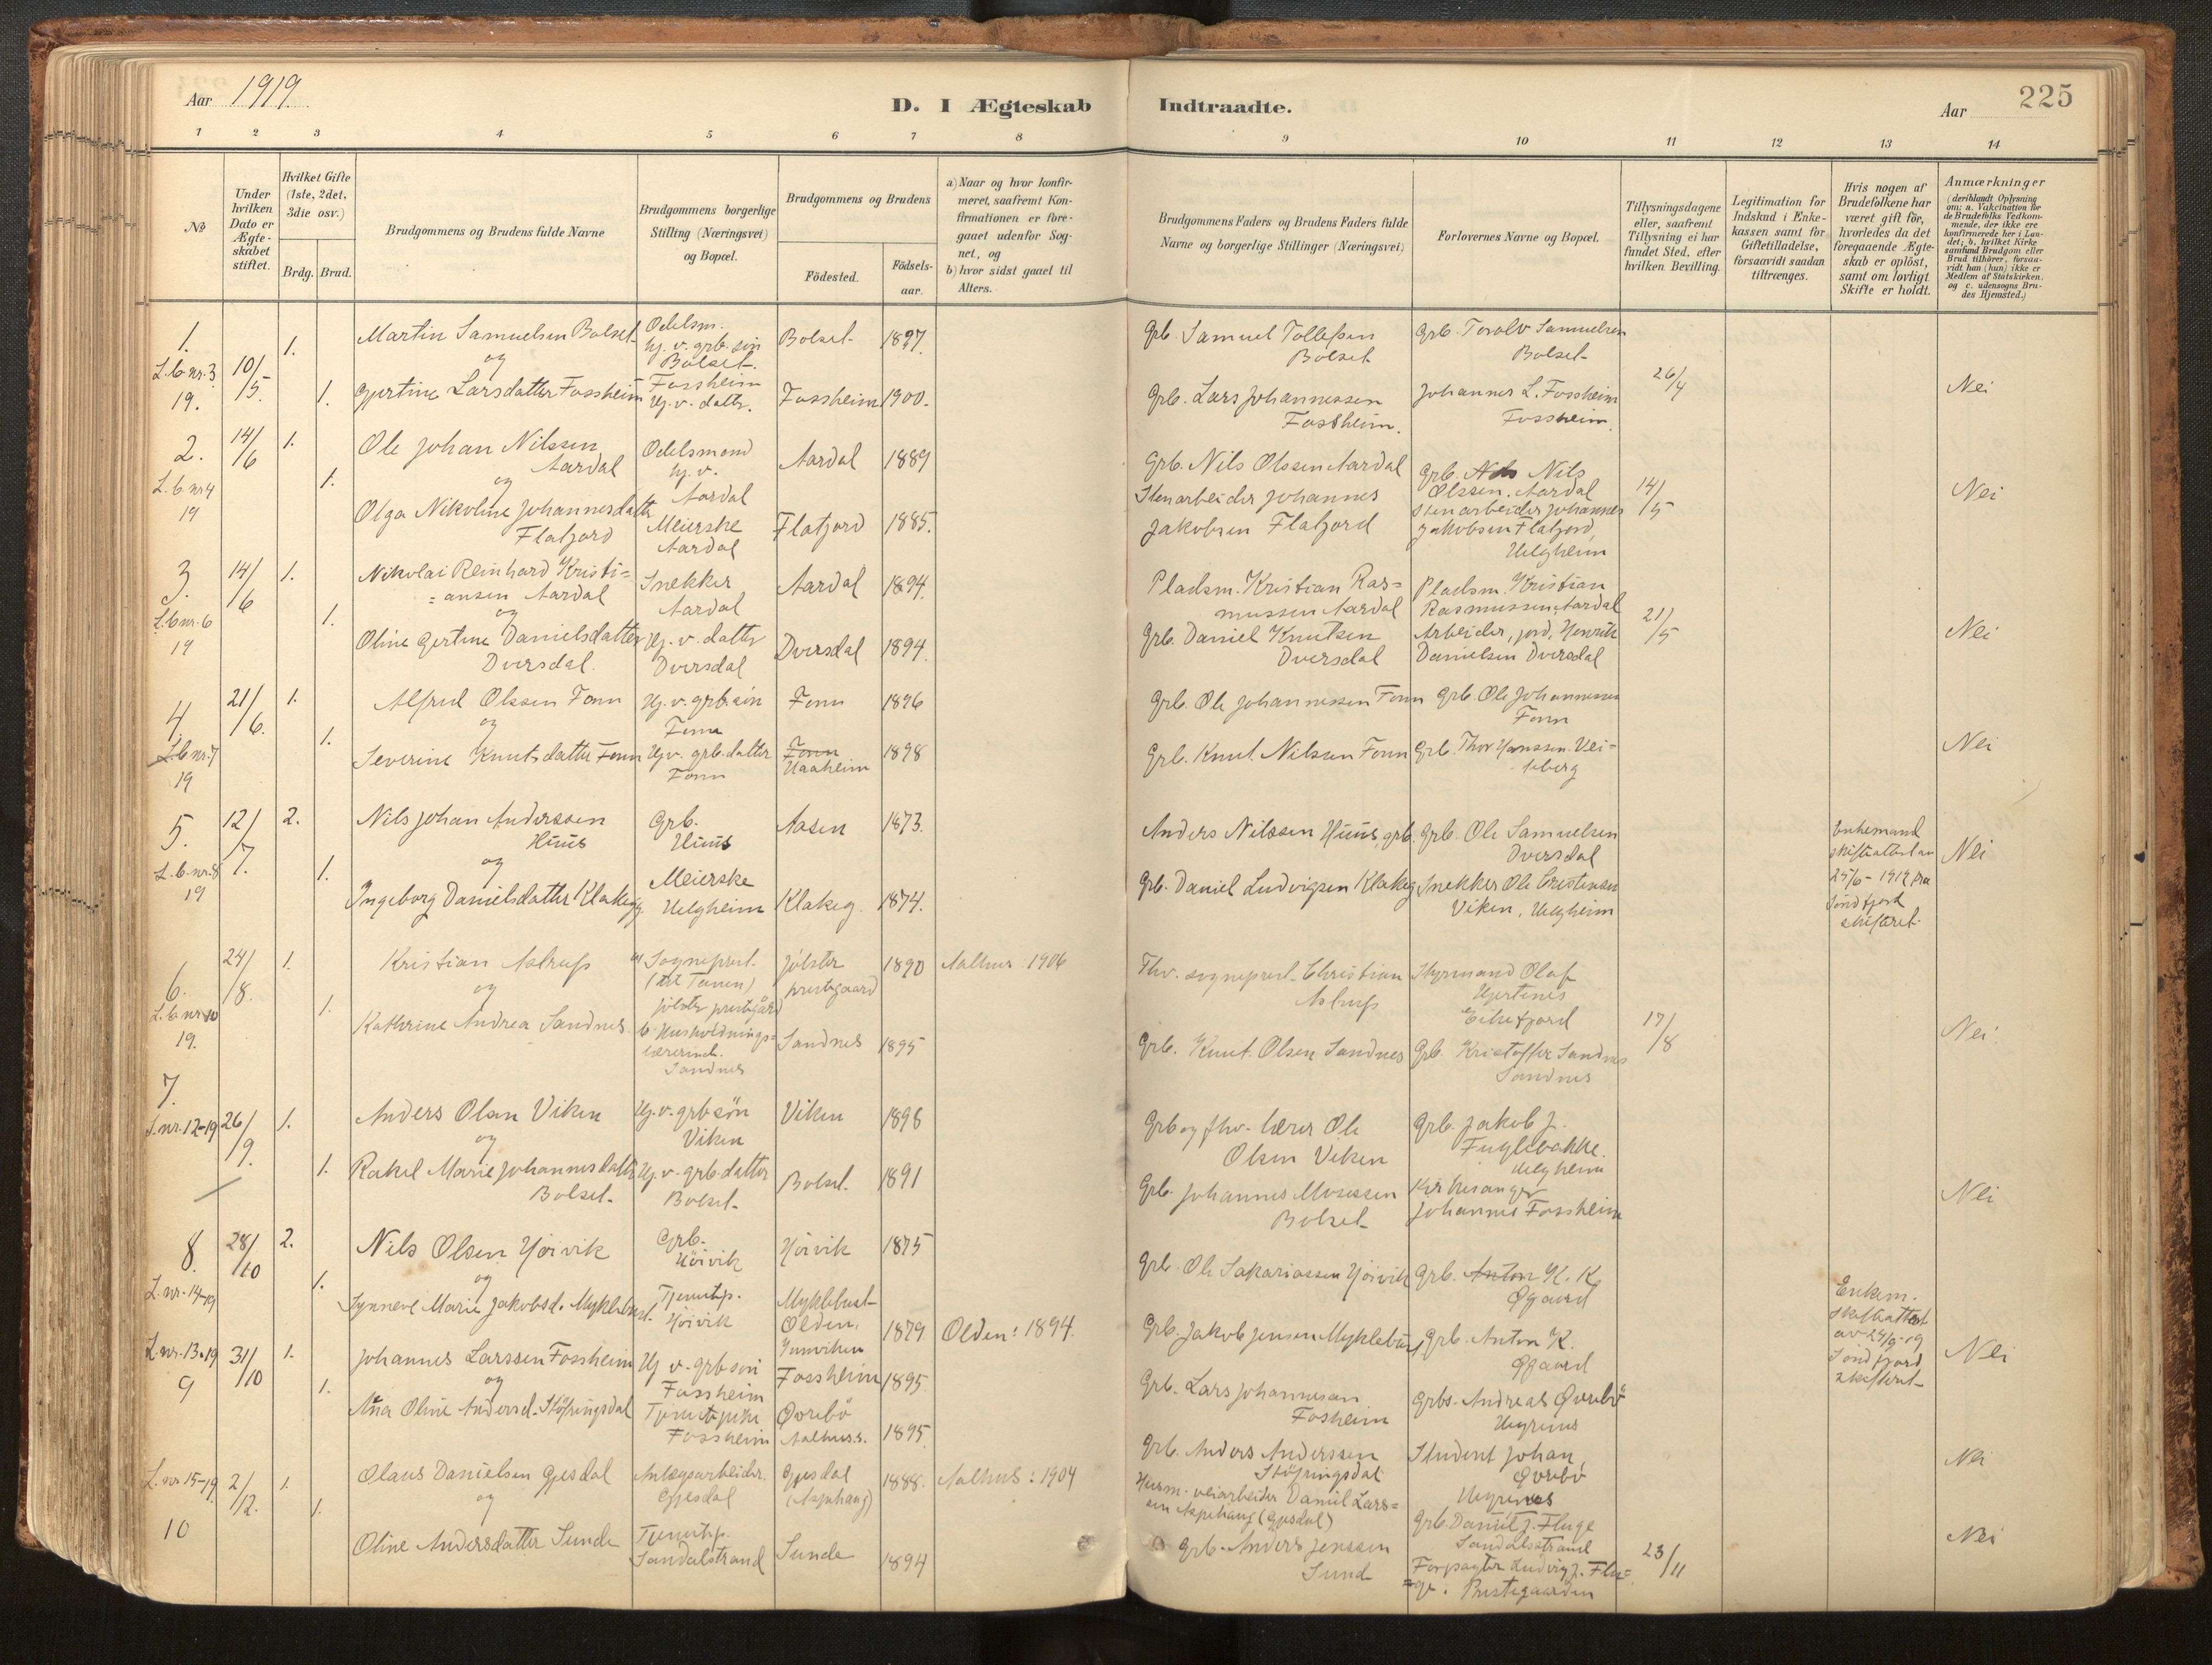 Aar 1919.
D. I Ægteskab Indtraadte.
Aar 225
1 2 3 4 5 6 7 8 9 10 11 12 13 14
No
Under hvilken Dato er Ægteskabet stiftet.
Hvilket Gifte (1ste, 2det, 3die osv.)
Brdg. Brud.
Brudgommens og Brudens fulde Navne
Brudgommens borgerlige Stilling (Næringsvei) og Bopæl.
Brudgommens og Brudens
Födested. Födselsaar.
a) Naar og hvor konfirmeret, saafremt Konfirmationen er foregaaet udenfor Sognet, og
b) hvor sidst gaaet til Alters.
Brudgommens Faders og Brudens Faders fulde Navne og borgerlige Stillinger (Næringsvei)
Forlovernes Navne og Bopæl.
Tillysningsdagene eller, saafremt Tillysning ei har fundet Sted, efter hvilken Bevilling.
Legitimation for Indskud i Enkekassen samt for Giftetilladelse, forsaavidt saadan tiltrænges.
Hvis nogen af Brudefolkene har været gift för, hvorledes da det foregaaende Ægteskab er oplöst, samt om lovligt Skifte er holdt.
Anmærkninger (deriblandt Oplysning om: a. Vakcination för de Brudefolks Vedkommende, der ikke ere konfirmerede her i Landet; b. hvilket Kirkesamfund Brudgom eller Brud tilhörer, forsaavidt han (hun) ikke er Medlem af Statskirken. og c. udensogns Brudes Hjemsted.)
1. L.b.nr.3 19. 10/5. 1.
Martin Samuelsen Bolset
Odelsm. hj.v. grb.sön Bolset.
Bolset 1897.
Grb. Samuel Tollefsen Bolset
Grb. Torolv Samuelsen Bolset
og
1. Gjertine Larsdatter Fossheim
Fossheim Hj.v. dattr.
Fossheim 1900.
Grb. Lars Johannessen Fossheim.
Johannes L. Fossheim Fossheim.
26/4
Nei
2. L.b.nr4 19 14/6 1.
Ole Johan Nilssen Aardal
Odelsmand hj.v. Aardal
Aardal 1889
Grb. Nils Olssen Aardal
Grb. Nils Olssen. Aardal
og
1. Olga Nikoline Johannesdattr Flatjord
Meierske Aardal
Flatjord 1885.
Stenarbeider Johannes Jakobsen Flatjord
Stenarbeider Johannes Jakobsen Flatjord, Helgheim
14/5
Nei
3. L.b.nr.6 19 14/6 1.
Nikolai Reinhard Kristi=
=ansen Aardal
Snekker Aardal
Aardal 1894.
Pladsm. Kristian Ras=
mussen Aardal
Pladsm. Kristian Rasmussen, Aardal
og
1. Oline Gertine Danielsdatter Dversdal.
Hj.v. dattr Dversdal
Dversdal 1894.
Grb. Daniel Knutsen Dversdal
Arbeider, jord, Henrik Danielsen Dversdal
21/5
Nei
4. L.b.nr.7 19 21/6. 1.
Alfred Olssen Fonn
Hj.v. grb.sön Fonn
Fonn 1896
Grb. Ole Johannessen Fonn
Grb. Ole Johannessen Fonn
og
1. Severine Knutsdatter Fonn
Hj.v. grb.datter Fonn
Fonn Haaheim 1898
Grb. Knut Nilssen Fonn
Grb. Thor Hanssen Vei=
teberg
Nei
5. L.b.nr.8 19 12/7. 2.
Nils Johan Anderssen Huus
Grb. Huus
Aasen 1873.
Anders Nilssen Huus, grb.
Grb. Ole Samuelsen Dversdal
Enkemand skifteattest av 25/6-1919 fra Söndfjord skifteret.
og
1. Ingeborg Danielsdatter Klakeg
Meierske Helgheim
Klakeg. 1874.
Grb. Daniel Ludvigsen Klakeg
Snekker Ole Cristensen Viken, Helgheim
Nei
6. L.b.nr10 19. 24/8. 1.
Kristian Astrup
a) Sogneprest. (til Tanen) Jölster prestegård
Jölster prestegaard 1890
Aalhus 1906
Fhv. sogneprest Christian Astrup
Styrmand Olaf Hjertenes Eikefjord
og
1. Kathrine Andrea Sandnes
b. Husholdnings=
lærerind. Sandnes
Sandnes 1895
Grb. Knut Olsen Sandnes
Grb. Kristoffer Sandnes Sandnes
17/8
Nei
7. L.nr.12-19 26/9. 1.
Anders Olsen Viken
Hj.v. grb.sön Viken
Viken 1898
Grb og fhv. lærer Ole Olsen Viken
Grb. Jakob J. Fuglebakke. Helgheim
og
1. Rakel Marie Johannesdatter Bolset
Hj.v. grb.datter Bolset.
Bolset. 1891
Grb. Johannes Mosessen Bolset
Kirkesanger Johannes Fossheim
Nei
8. L.nr.-14-19 28/10 2.
Nils Olsen Höivik
Grb. Höivik
Höivik 1875
Grb. Ole Sakariassen Höivik
Grb. Anton H. K. Øgaard
og
1. Synneve Marie Jakobsd. Myklebust.
Tjenestp. Höivik
Myklebust Olden, Innviken 1879.
Olden: 1894.
Grb. Jakob Jensen Myklebust
Grb. Anton K. Øgaard
Enkem. skifteattest av 24/9-19 Söndfjord skifteret
Nei
L.nr.13-19 9 31/10 1.
Johannes Larssen Fossheim
Hj v. grb sön Fossheim
Fossheim 1895
Grb. Lars Johannesen Fosheim
Grbs. Andreas Øvrebö Hegrenes
og
1. Ana Oline Andersd. Stöfringsdal
Tjenestpike Fossheim
Øvrebö Aalhus s. 1895.
Grb. Anders Anderssen Stöfringsdal
Student Johan Øvrebö Hegrenes
Nei
L.nr 15-19 10 2/12. 1.
Olaus Danielsen Gjesdal
Anlægsarbeider. Gjesdal
Gjesdal (Aspehaug) 1888.
Aalhus: 1904
Husm. veiarbeider Daniel Lars=
sen Aspehaug (Gjesdal)
Grb. Daniel J. Fluge Sandalsstrand
og
1. Oline Andersdatter Sunde
Tjenestp. Sandalstrand
Sunde 1894
Grb. Anders Jenssen Sund
Forpagter Ludvig J. Flu=
=ge. Prestegaarden
23/11
Nei